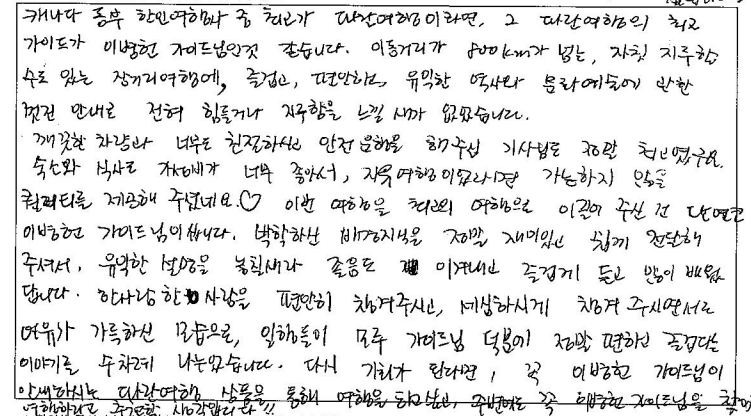 캐나다 동부 한인여행사 중 최고가 파란여행이라면, 그 파란여행의 최고
가이드가 이병헌 가이드님인것 같습니다. 이동거리가 800km가 넘는, 자칫 지루할
수도 있는 장거리여행에, 즐겁고, 편안하고, 유익한 역사와 문화예술에 관한
멋진 안내로 전혀 힘들거나 지루함을 느낄 새가 없었습니다.
깨끗한 차량과 너무도 친절하시고 안전운행을 해주신 기사님도 정말 최고였구요.
숙소와 식사도 가성비가 너무 좋아서, 자유여행이었더라면 가능하지 않을
퀄리티를 제공해 주셨네요♡ 이번 여행을 최고의 여행으로 이끌어 주신 건 단연코
이병헌 가이드님이십니다. 박학하신 배경지식을 정말 재미있고 쉽게 전달해
주셔서, 유익한 설명을 놓칠새라 졸음도 이겨내고 즐겁게 듣고 많이 배웠
답니다. 한사람 한 사람을 편안히 챙겨주시고, 세심하시게 챙겨 주시면서도
여유가 가득하신 모습으로, 일행들이 모두 가이드님 덕분에 정말 편하고 즐겁다는
이야기를 수차례 나눴습니다. 다시 기회가 된다면, 꼭 이병헌 가이드님이
안내하시는 파란여행 상품을 통해 여행을 하고싶고, 주변에도 꼭 이병헌 가이드님을
여행하라고 추천할 생각입니다!!